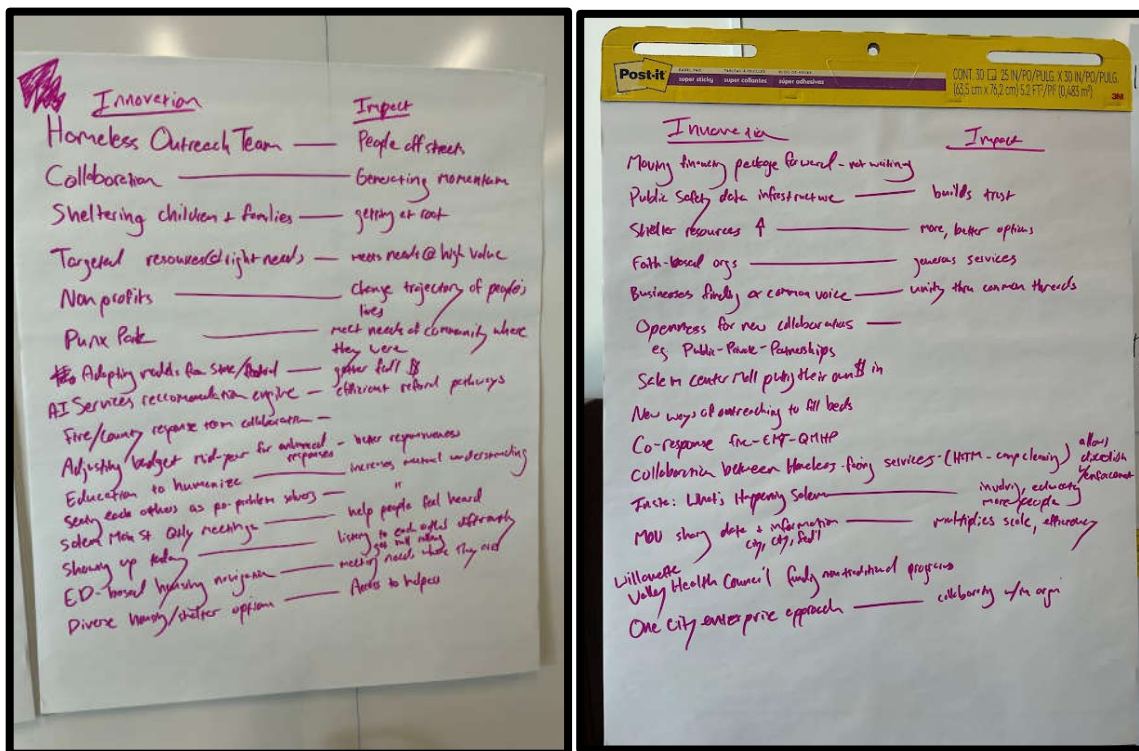 Innovation Impact
Homeless Outreach Team — People off streets
Collaboration — Generating momentum
Sheltering children + families — getting at root
Targeted resources @ right needs — meets needs @ high value
Nonprofits — change trajectory of people's
lives
Punx Park — meet needs of community where
they were
Adopting models from State/ — gather fed'l $
AI Services reccomendation engine — efficient referral pathways
Fire/County response team collaboration —
Adjusting budget mid-year for enhanced responses - better responsiveness
Education to humanize — increases mutual understanding
Seeing each others as po-problem solvers — "
Salem Main St. Qtly meetings — help people feel heard
Showing up today — listening to each other differently
get ball rolling
ED-based housing navigation — meeting needs where they are
Diverse housing/shelter options — Access to helpers
Post-it
super sticky super collantes súper adhesivas
CONT. 30 25 IN/PO/PULG. X 30 IN/PO/PULG.
(63,5 cm x 76,2 cm) 5.2 FT²/PI² (0,483 m²)
3M
Innovation Impact
Moving financing package forward - not waiting
Public Safety data infrastructure — builds trust
Shelter resources ↑ — more, better options
Faith-based orgs — generous services
Businesses finding a common voice — unity thru common threads
Openness for new collaborations —
eg. Public-Private-Partnerships
Salem center Mall putting their own $ in
New ways of outreaching to fill beds
Co-response fire-EMT-QMHP
Collaboration between homeless-facing services - (HOTM - camp cleaning) allows
w/enforcement
Insta: What's Happening Salem — involving, educating
more people
MOU sharing data + information — multiplies scale, efficiency
city, cty, fed'l
Willamette
Valley Health Council funding nontraditional programs
One City enterprise approach — collaborating w/in orgn